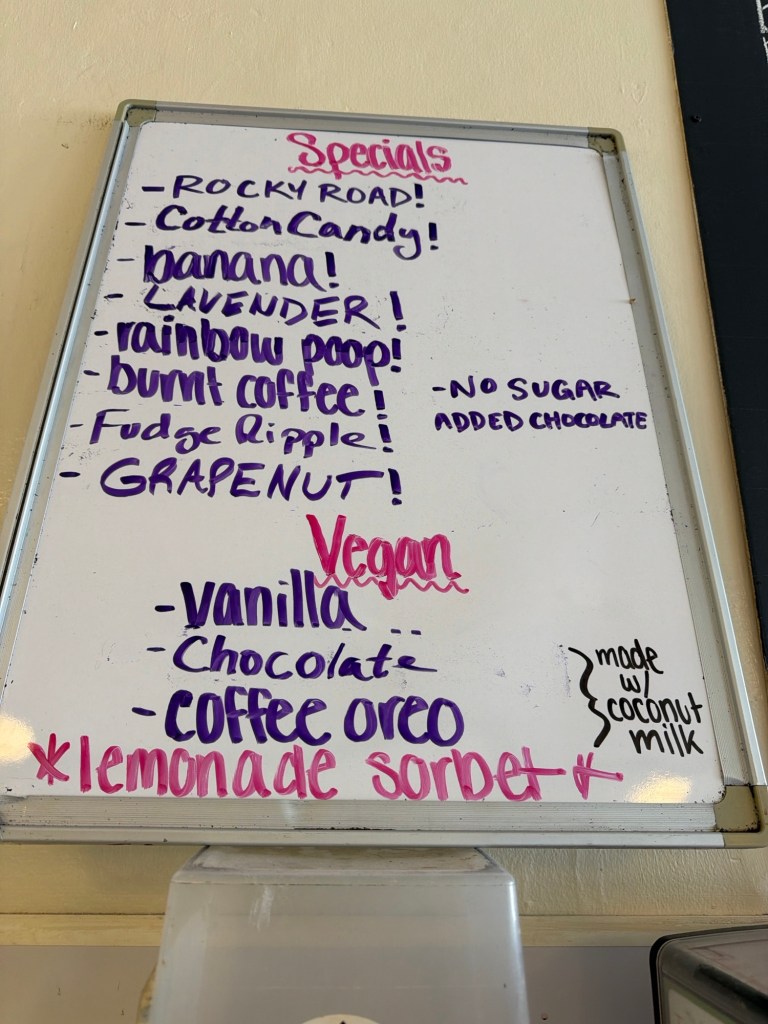 Specials
- ROCKY ROAD!
- Cotton Candy!
- banana!
- LAVENDER!
- rainbow poop!
- burnt coffee!
- Fudge Ripple!
- GRAPENUT!
- NO SUGAR
ADDED CHOCOLATE
Vegan
- vanilla
- Chocolate
- coffee oreo
made
w/
coconut
milk
*lemonade sorbet*